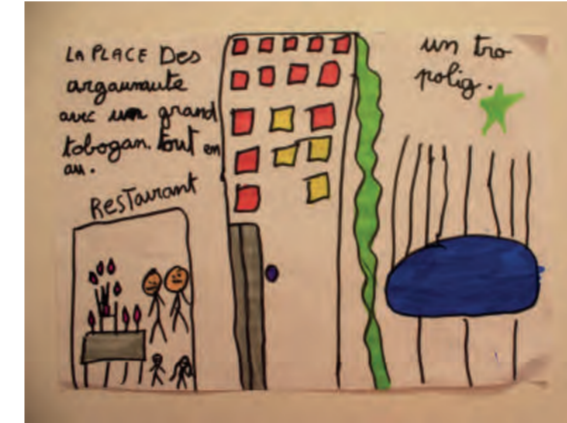 LA PLACE Des
argaunaute
avec un grand
tobogan. tout en
au.
RESTaurant
un tro
polig.